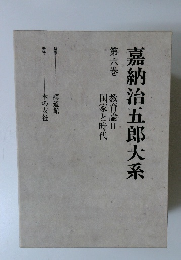 嘉納治五郎大系
第六巻
教育論II
国家と時代
講道館
本の友社